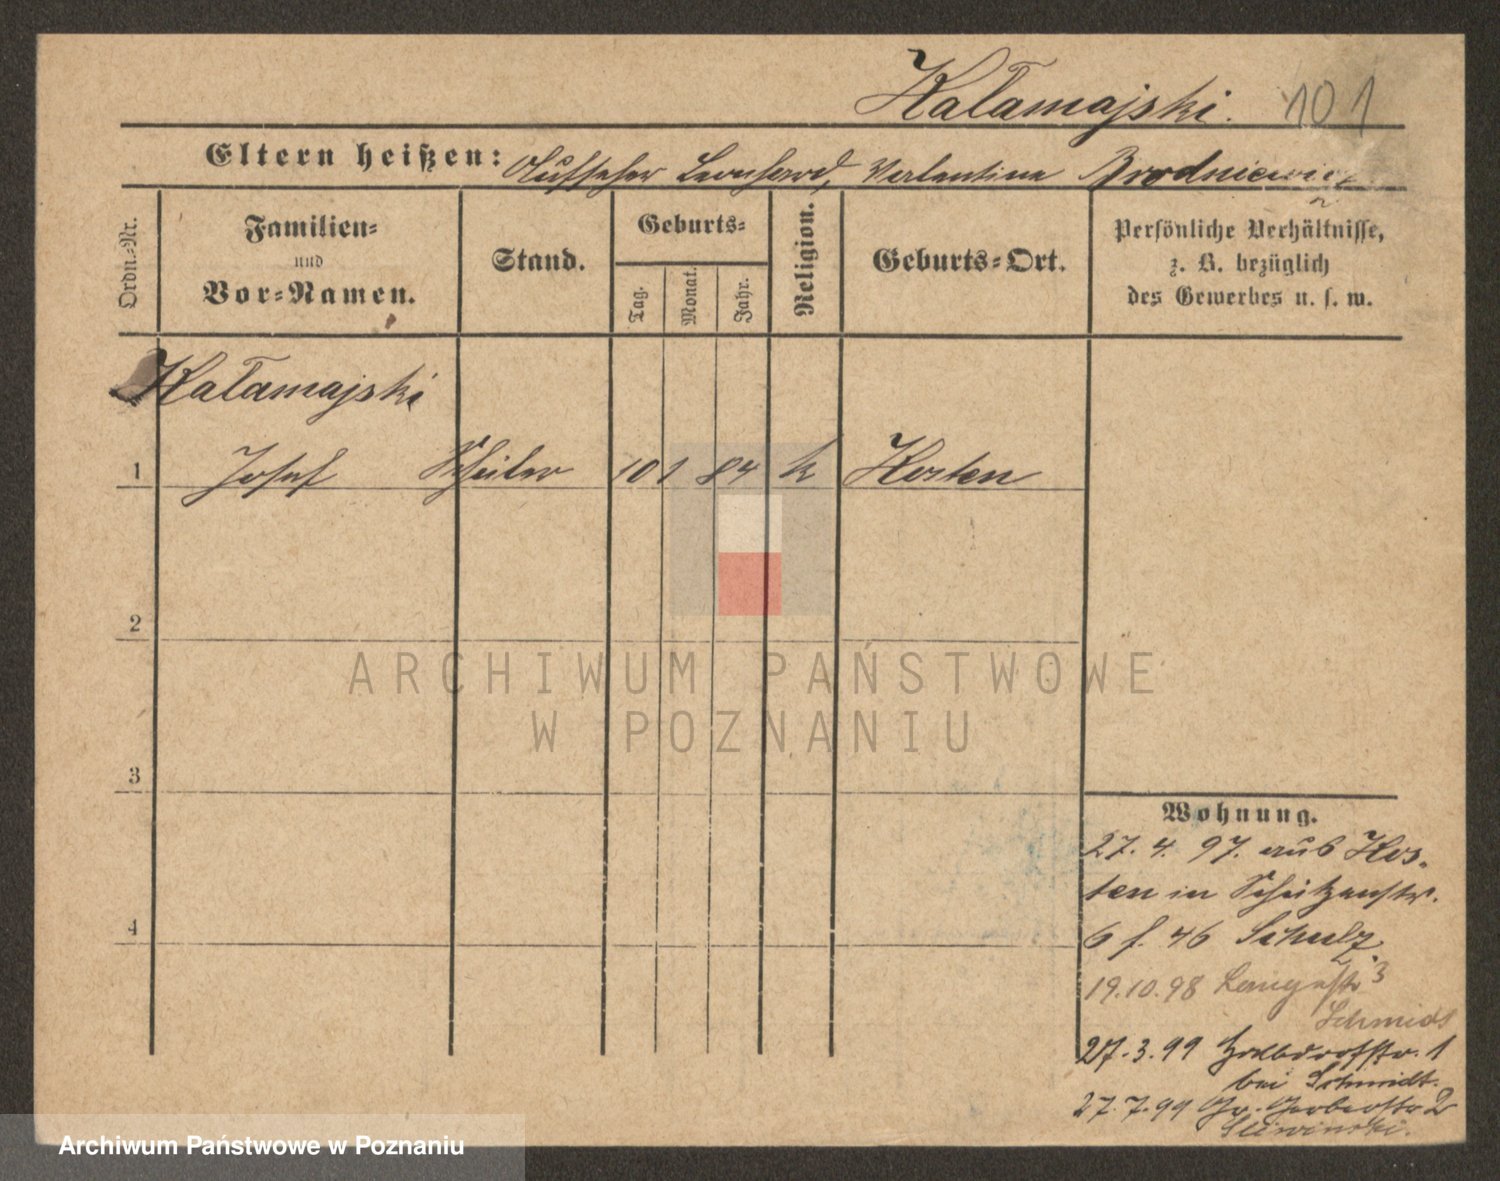 Kałamajski. 101
Eltern heißen: Aufseher Leonhard, Valentine Brodniewicz
Ordn.-Nr.
Familien-
und
Vor-Namen.
Stand.
Geburts-
Tag.
Monat.
Jahr.
Religion.
Geburts-Ort.
Persönliche Verhältnisse,
z. B. bezüglich
des Gewerbes u. s. w.
Kałamajski
1 Josef Schüler 10 1 84 k Kosten
2
ARCHIWUM PAŃSTWOWE
W POZNANIU
3
4
Wohnung.
27. 4. 97. aus Kos-
ten in Schützenstr.
6 f. 46 Schulz.
19.10.98 Langestr 3
Schmidt
27.3.99 Halbdorfstr. 1
bei Schmidt.
27.7.99 Gr. Gerberstr 2
Sliwinski.
Archiwum Państwowe w Poznaniu